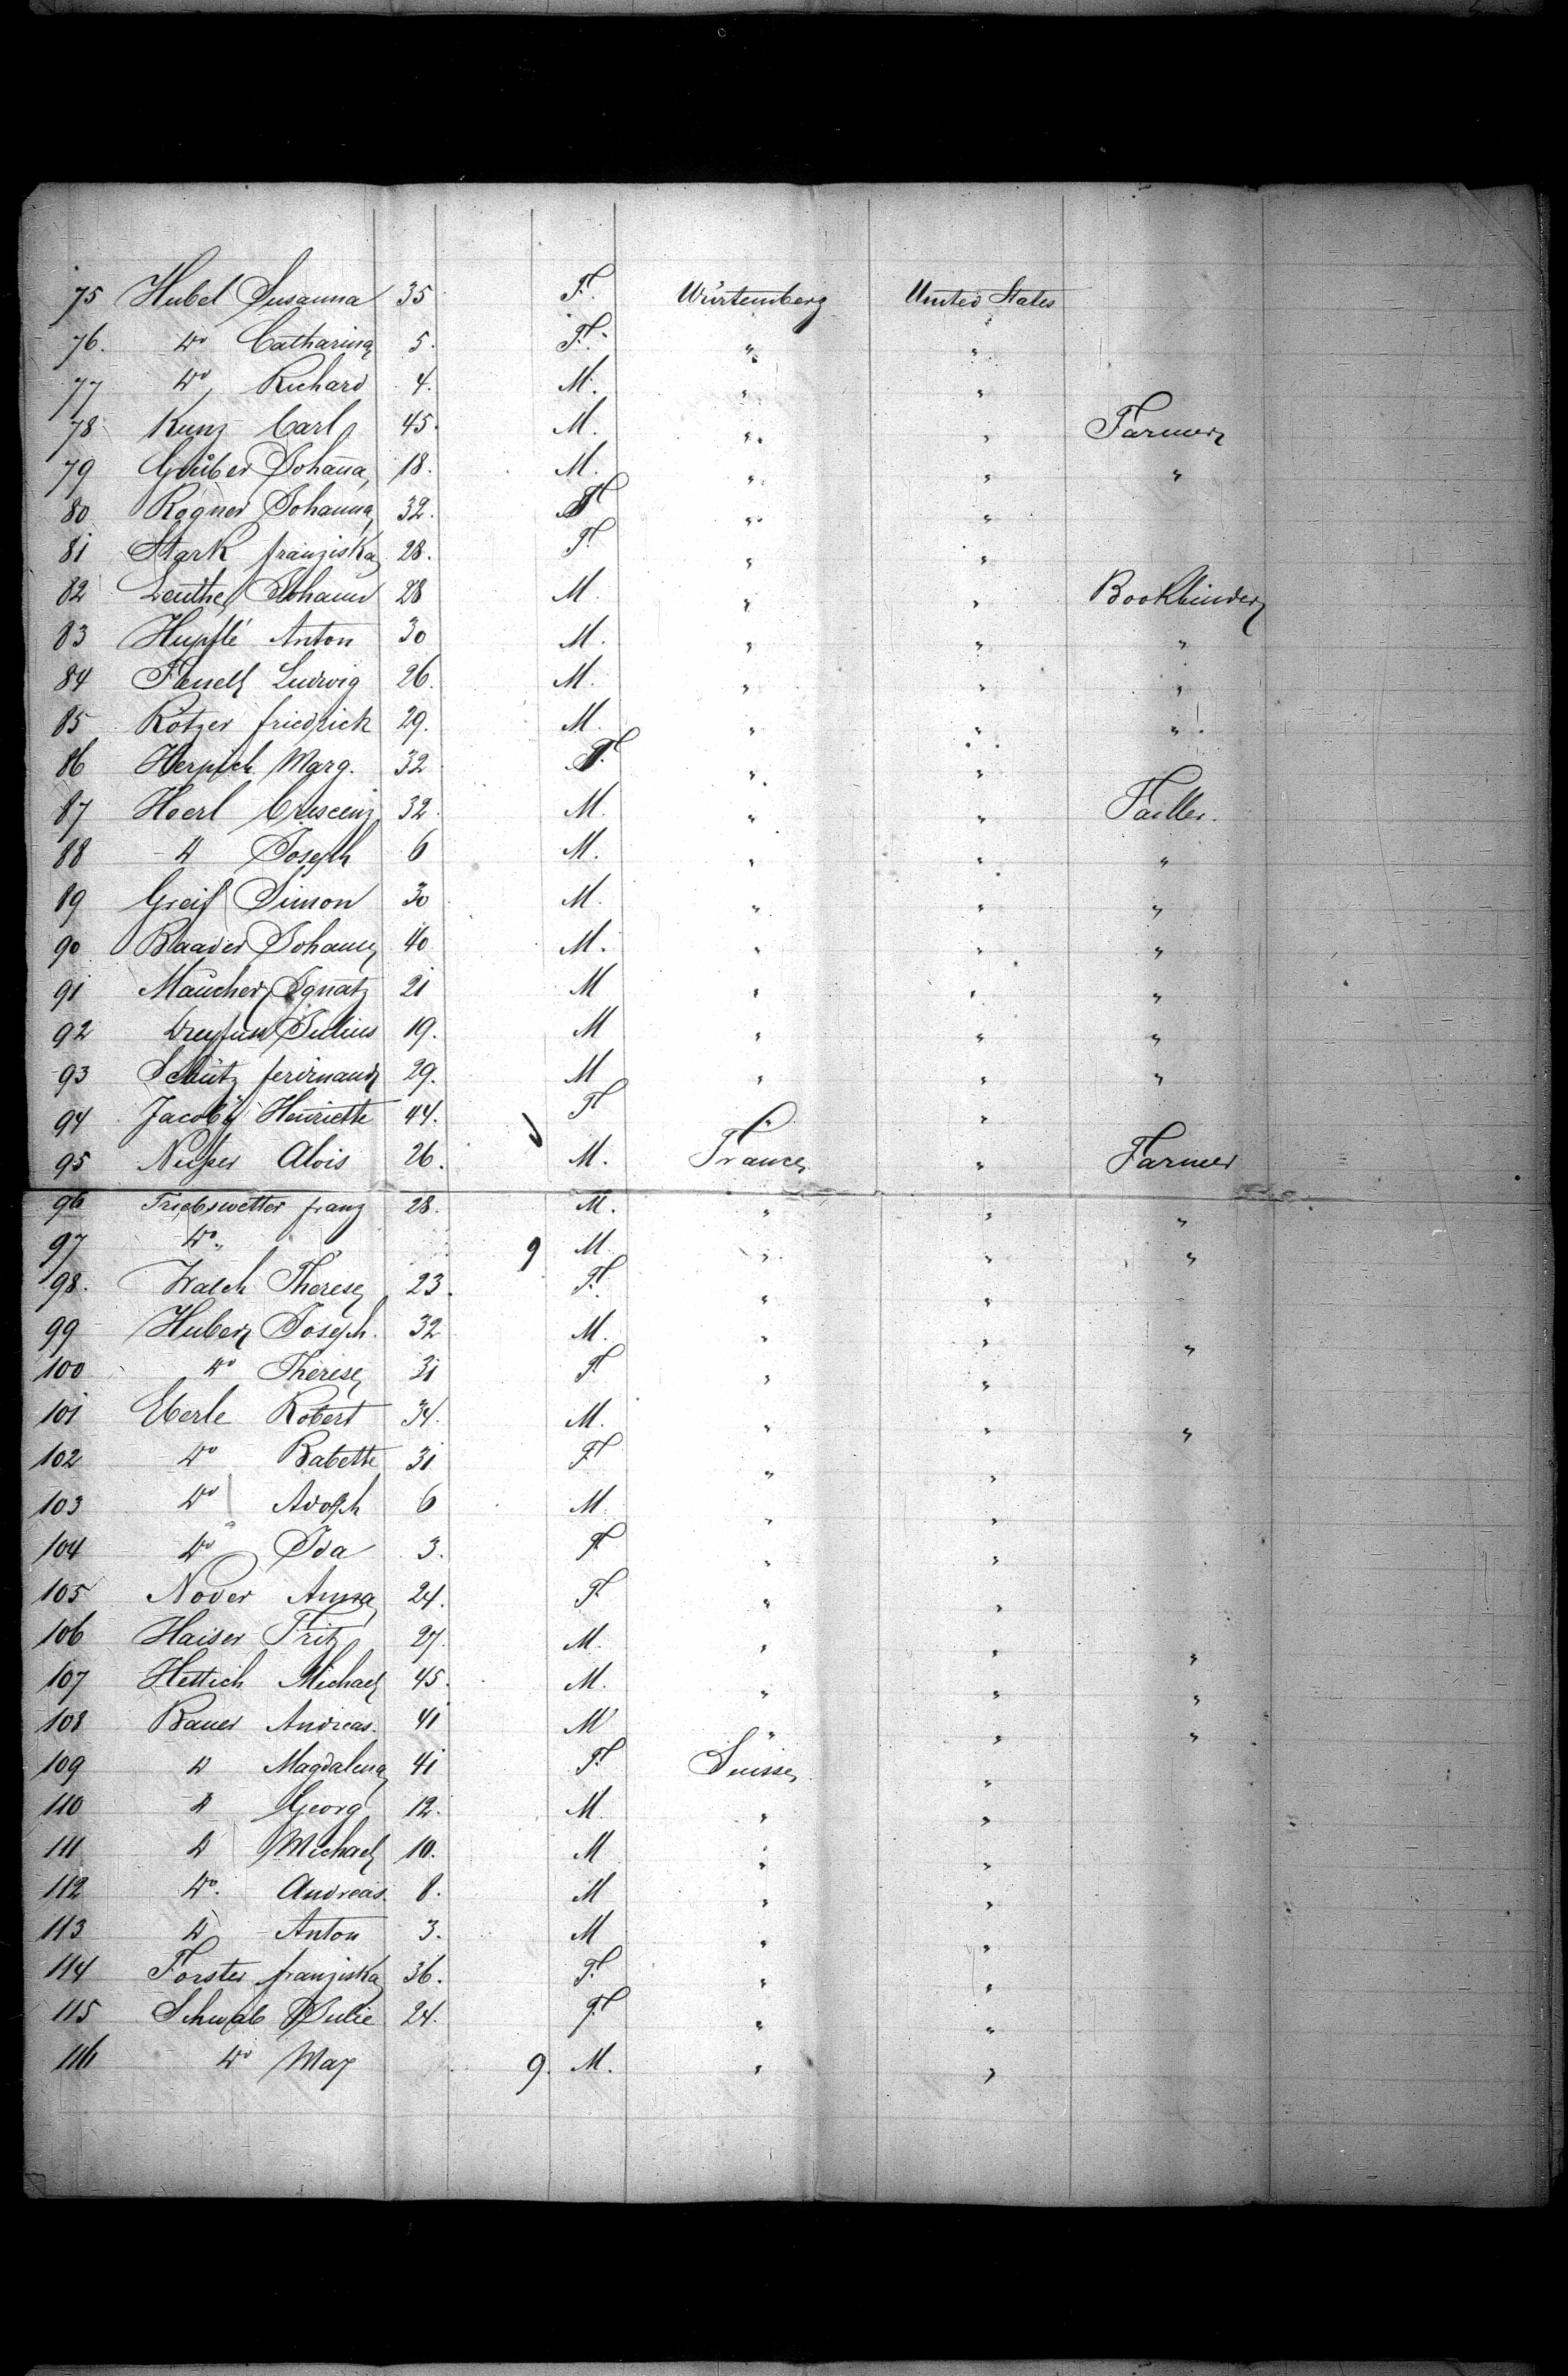 75 Hubel Susanna 35 F. Würtemberg United States
76. do Catharina 5. F. " "
77 do Richard 4. M. " "
78 Kunz Carl 45. M. " " Farmer
79 Gruber Johanna 18. M. " " "
80 Rogner Johanna 32. F " "
81 Stark franziska 28. F. " "
82 Johann 28 M. " " Bookbinder
83 Hupflé Anton 30 M. " " "
84 Ludwig 26. M. " " "
85 Rotzer friedrich 29. M. " " "
86 Herpich Marg. 32 F. " "
87 Hoerl Crescenz 32. M. " " Tailler.
88 do Joseph 6 M. " " "
89 Greif Simon 30 M. " " "
90 Baader Johann 40 M. " " "
91 Maucher Ignatz 21 M " " "
92 Dreyfuss Julius 19. M " " "
93 Schütz ferdinand 29. M " " "
94 Jacoby Henriette 44. F " "
95 Alois 26. M. France " Farmer
96 Triebswetter franz 28. M. " " "
97 do " 9 M. " " "
98. Therese 23. F. " "
99 Huber Joseph. 32 M. " " "
100 do Therese 31 F " "
101 Eberle Robert 34. M. " " "
102 do Babette 31 F " "
103 do Adolph 6 M. " "
104 do Ida 3. F " "
105 Noder Anna 24. F " "
106 Haiser Fritz 27. M. " " "
107 Hettich Michael 45. M. " " "
108 Bauer Andreas. 41 M " " "
109 do Magdalena 41 F. Suisse "
110 do Georg 12. M. " "
111 do Michael 10. M " "
112 do. Andreas. 8. M " "
113 do Anton 3. M " "
114 Forster franziska 36. F. " "
115 Schwab Julie 24. F " "
116 do Max 9. M. " "